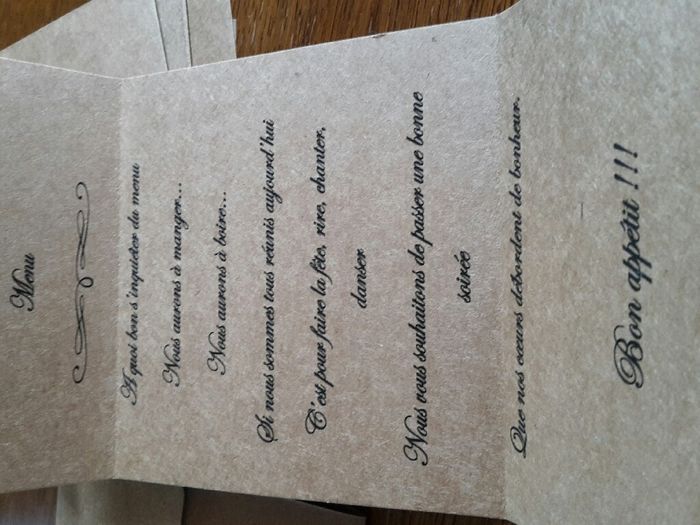 Menu
A quoi bon s'inquieter du menu
Nous aurons à manger...
Nous aurons à boire...
Si nous sommes tous réunis aujourd'hui
C'est pour faire la fête, rire, chanter,
danser
Nous vous souhaitons de passer une bonne
soirée
Que nos cœurs débordent de bonheur.
Bon appétit !!!